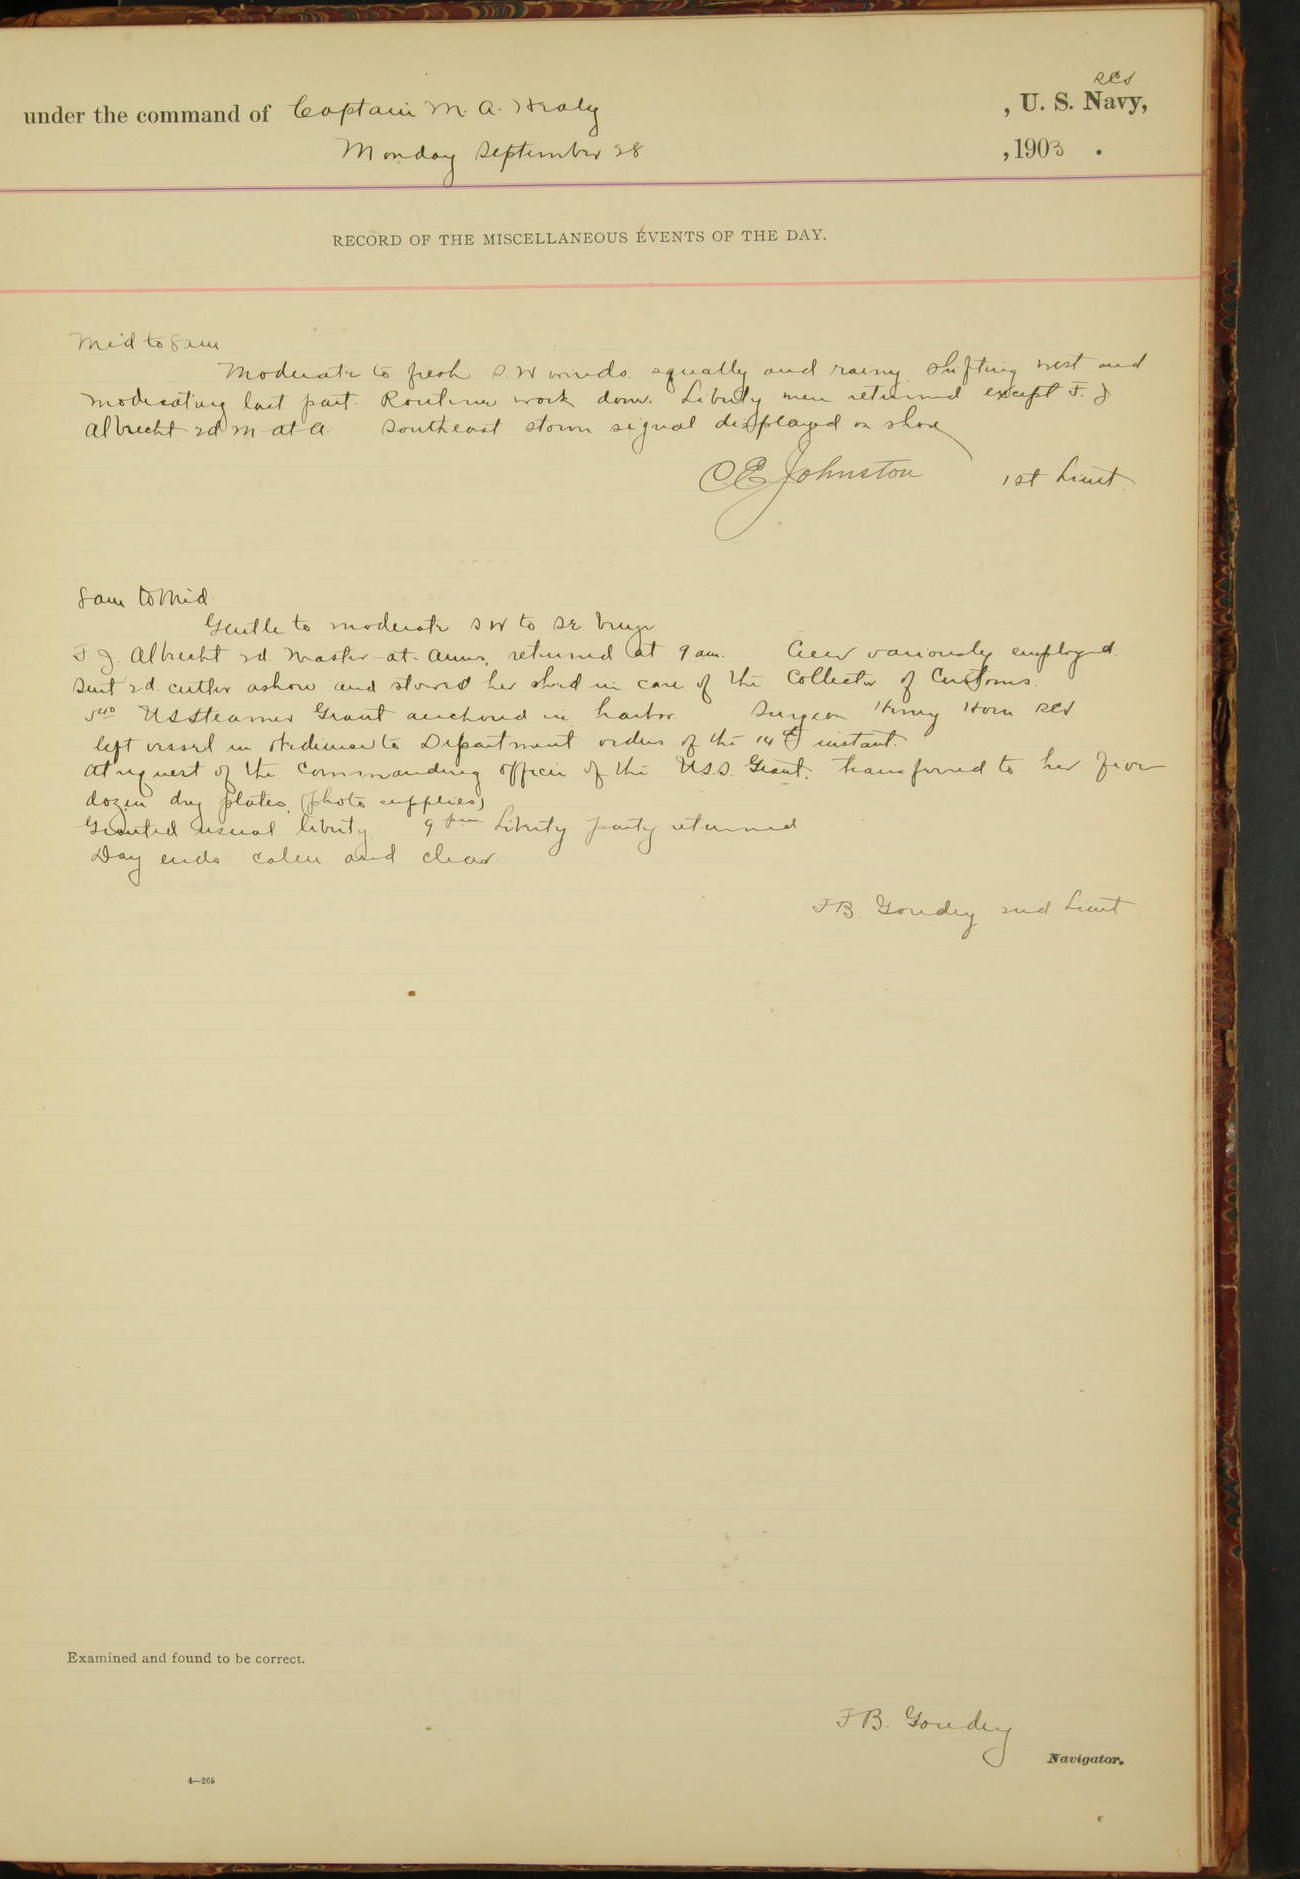 RCS
under the command of Captain M. A. Healy , U. S. Navy,
Monday September 28 , 1903 .
RECORD OF THE MISCELLANEOUS EVENTS OF THE DAY.
Mid to 8 am
Moderate to fresh S.W winds. squally and rainy. shifting west and
moderating last part. Routine work done. Liberty men returned except F. J
Albrecht 2d M at A. Southeast storm signal displayed on shore
C E Johnston 1st Lieut.
8 am to Mid.
Gentle to moderate SW to SE breeze
F. J. Albrecht 2d. Master-at-Arms, returned at 9 am. Crew variously employed.
Sent 2d. cutter ashore and stored her shed in care of the Collector of Customs.
5 40 US Steamer Grant anchored in harbor. Surgeon Henry Horn RCS
left vessel in obedience to Department orders of the 14th instant.
At request of the Commanding officer of the U.S.S. Grant, transferred to her four
dozen dry plates, (photo supplies)
Granted usual liberty 9 pm. Liberty party returned
Day ends calm and clear.
F B. Goudey 2nd Lieut
Examined and found to be correct.
F B. Goudey
Navigator.
4—265